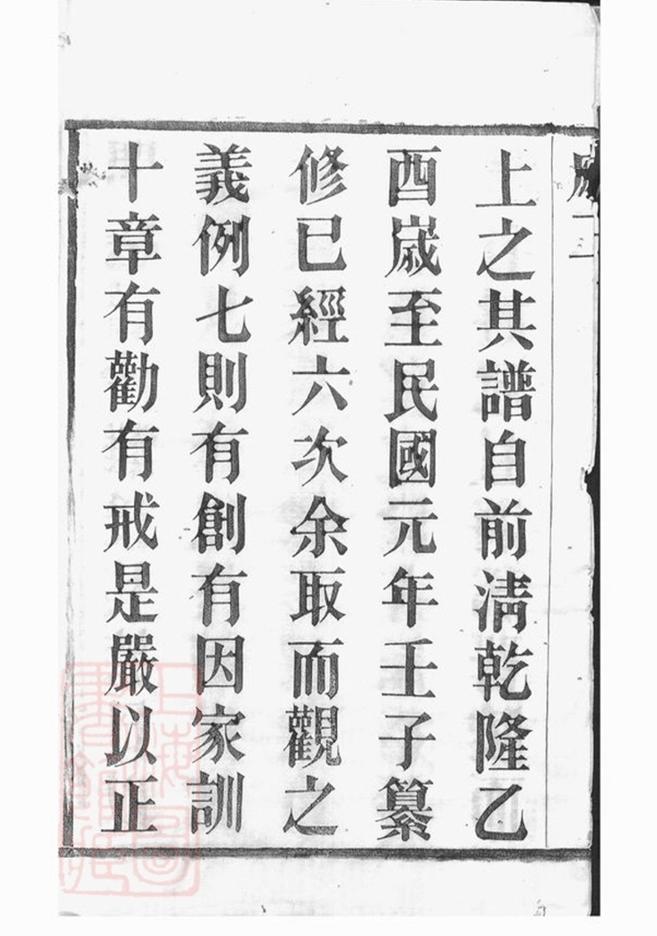 上之其譜自前淸乾隆乙
酉嵗至民國元年壬子纂
修已經六次余取而觀之
義例七則有創有因家訓
十章有勸有戒是嚴以正
上海圖書館藏